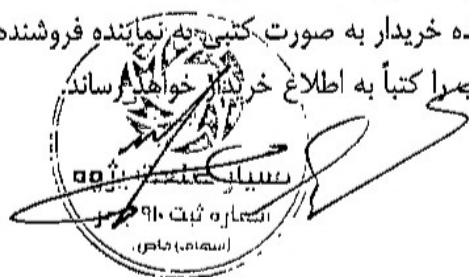 ده خریدار به صورت کتبی به نماینده فروشنده
را کتباً به اطلاع خریدار خواهد رساند.
شماره ثبت ۹۱۰
(سهامی خاص)